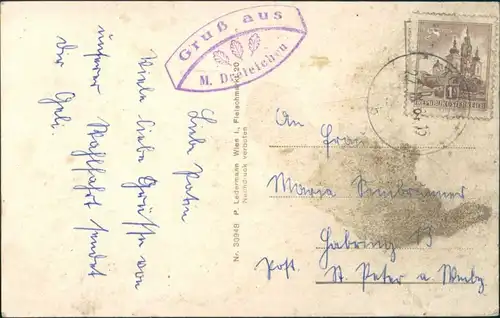 Gruß aus
M. Dreieichen
Liebe Patin
Viele liebe Grüsse von
unserer Wallfahrt sendet
Dir Geli.
Nr. 30949 P. Ledermann Wien I., Fleischmarkt 20
Nachdruck verboten
An Frau
Maria
13
Post. St. Peter a. Wimbg.
REPUBLIK ÖSTERREICH